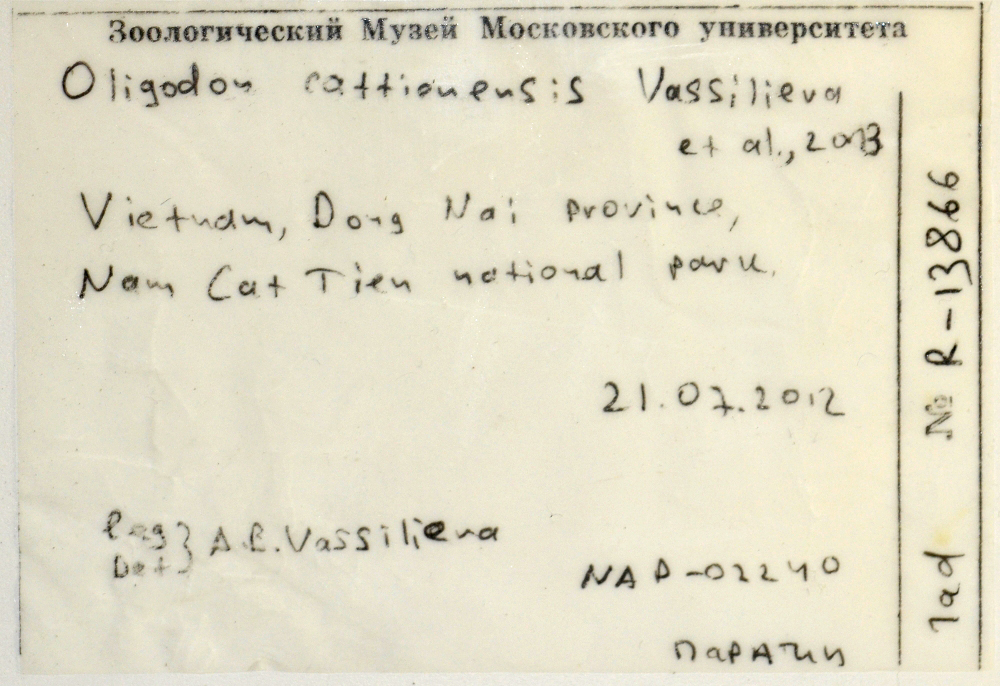 Зоологический Музей Московского университета
Oligodon cattienensis Vassilieva
et al., 2013
Vietnam, Dong Nai province,
Nam Cat Tien national park.
21.07.2012
leg } A.B. Vassilieva
Det.
NAP-02240
паратип
1ad № R-13866